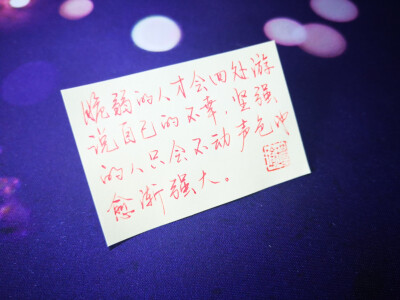 脆弱的人才会四处游
说自己的不幸，坚强
的人只会不动声色冲
愈渐强大。